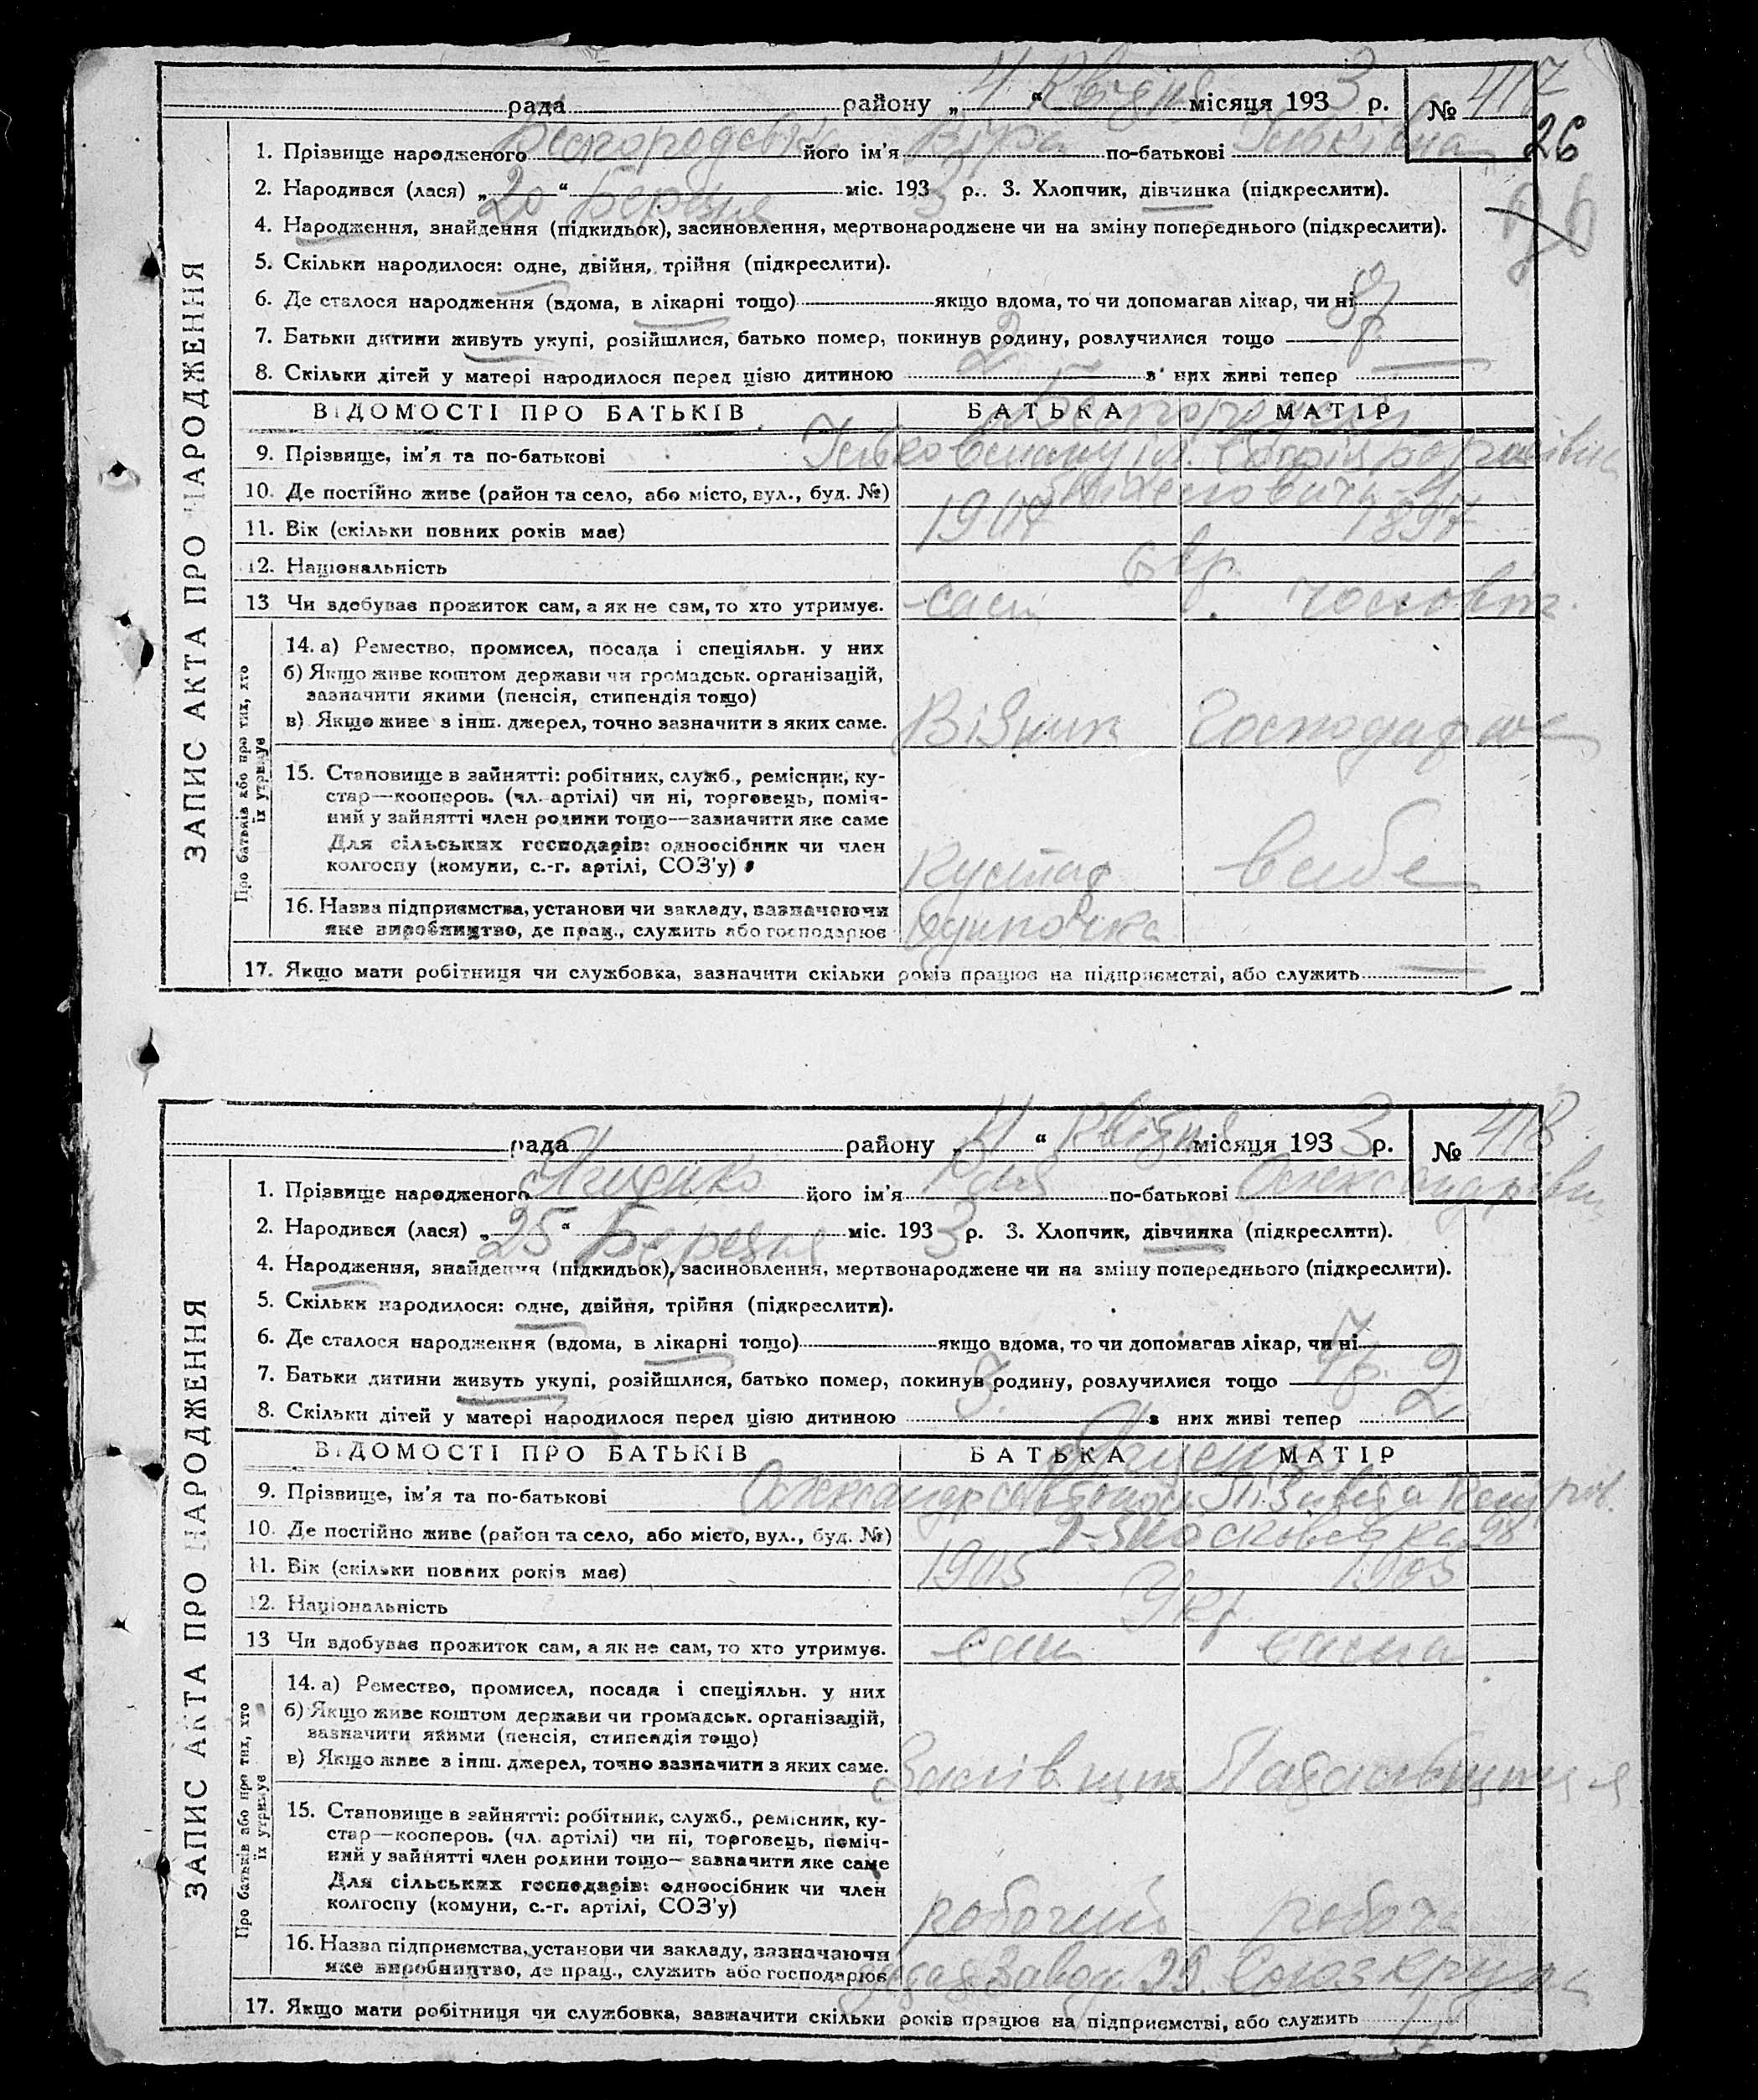 рада району „ 4 “ Квітня місяця 1933 р. № 417
26
1. Прізвище народженого його ім'я Віра по-батькові Ільківна
2. Народився (лася) „ 20 “ Березня міс. 1933 р.. 3. Хлопчик, дівчинка (підкреслити).
4. Народження, знайдення (підкидьок), засиновлення, мертвонароджене чи на зміну попереднього (підкреслити).
5. Скільки народилося: одне, двійня, трійня (підкреслити).
6. Де сталося народження (вдома, в лікарні тощо) якщо вдома, то чи допомагав лікар, чи ні
7. Батьки дитини живуть укупі, розійшлися, батько помер, покинув родину, розлучилися тощо
8. Скільки дітей у матері народилося перед цією дитиною 2 з них живі тепер —
ВІДОМОСТІ ПРО БАТЬКІВ БАТЬКА МАТІР
9. Прізвище, ім'я та по-батькові
10. Де постійно живе (район та село, або місто, вул., буд. №)
11. Вік (скільки повних років має) 1904 1897
12. Національність євр.
13 Чи здобуває прожиток сам, а як не сам, то хто утримує. сам чоловік
14. а) Ремество, промисел, посада і спеціяльн. у них
б) Якщо живе коштом держави чи громадськ. організацій,
зазначити якими (пенсія, стипендія тощо)
в) Якщо живе з інш. джерел, точно зазначити з яких саме. Візник Господарює
15. Становище в зайнятті: робітник, служб., ремісник, ку-
стар—кооперов. (чл. артілі) чи ні, торговець, поміч-
ний у зайнятті член родини тощо—зазначити яке саме
Для сільських господарів: одноосібник чи член
колгоспу (комуни, с.-г. артілі, СОЗ'у) Кустар в себе
16. Назва підприємства, установи чи закладу, зазначаючи
яке виробництво, де прац., служить або господарює одиночка
17. Якщо мати робітниця чи службовка, зазначити скільки років працює на підприємстві, або служить —
ЗАПИС АКТА ПРО НАРОДЖЕННЯ
Про батьків або про тих, хто
їх утримує
рада району „ 4 “ Квітня місяця 1933 р. № 418
1. Прізвище народженого його ім'я Рая по-батькові Олександрівна
2. Народився (лася) „ 25 “ Березня міс. 1933 р. 3. Хлопчик, дівчинка (підкреслити).
4. Народження, знайдення (підкидьок), засиновлення, мертвонароджене чи на зміну попереднього (підкреслити).
5. Скільки народилося: одне, двійня, трійня (підкреслити).
6. Де сталося народження (вдома, в лікарні тощо) якщо вдома, то чи допомагав лікар, чи ні
7. Батьки дитини живуть укупі, розійшлися, батько помер, покинув родину, розлучилися тощо
8. Скільки дітей у матері народилося перед цією дитиною 3. з них живі тепер 2
ВІДОМОСТІ ПРО БАТЬКІВ БАТЬКА МАТІР
9. Прізвище, ім'я та по-батькові Олександр
10. Де постійно живе (район та село, або місто, вул., буд. №) Московська 98
11. Вік (скільки повних років має) 1905 1905
12. Національність Укр.
13 Чи здобуває прожиток сам, а як не сам, то хто утримує. сам сама
14. а) Ремество, промисел, посада і спеціяльн. у них
б) Якщо живе коштом держави чи громадськ. організацій,
зазначити якими (пенсія, стипендія тощо)
в) Якщо живе з інш. джерел, точно зазначити з яких саме.
15. Становище в зайнятті: робітник, служб., ремісник, ку-
стар—кооперов. (чл. артілі) чи ні, торговець, поміч-
ний у зайнятті член родини тощо—зазначити яке саме
Для сільських господарів: одноосібник чи член
колгоспу (комуни, с.-г. артілі, СОЗ'у) робочий робоча
16. Назва підприємства, установи чи закладу, зазначаючи
яке виробництво, де прац., служить або господарює завод
17. Якщо мати робітниця чи службовка, зазначити скільки років працює на підприємстві, або служить
ЗАПИС АКТА ПРО НАРОДЖЕННЯ
Про батьків або про тих, хто
їх утримує